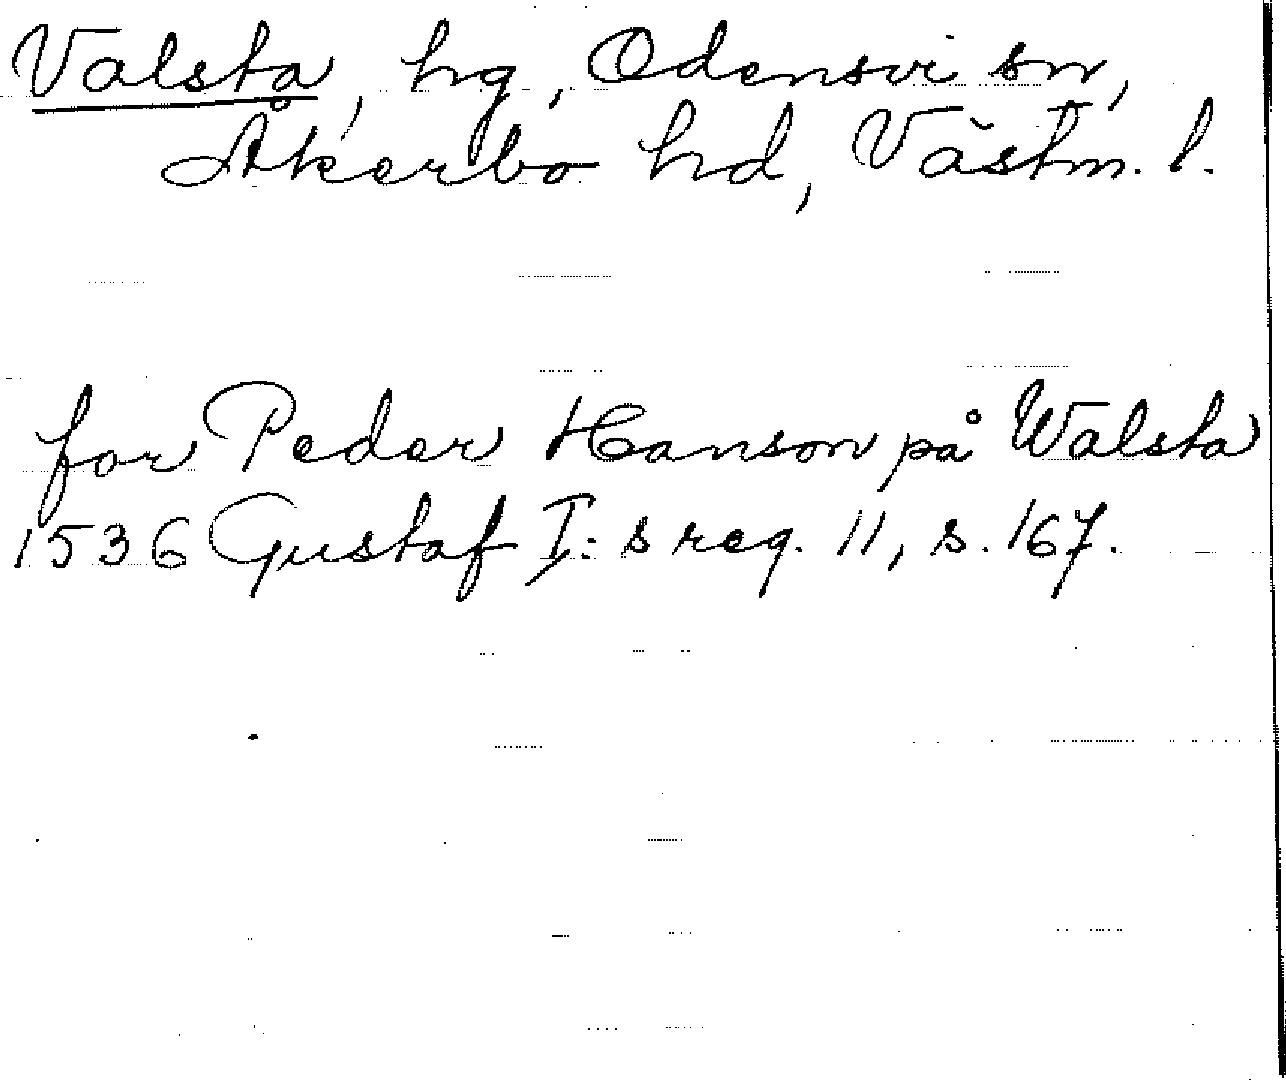 Valsta, hg, Odensvi sn,
Åkerbo hd, Västm. l.
for Peder Hanson på Walsta
1536 Gustaf I:s reg. 11, s. 167.